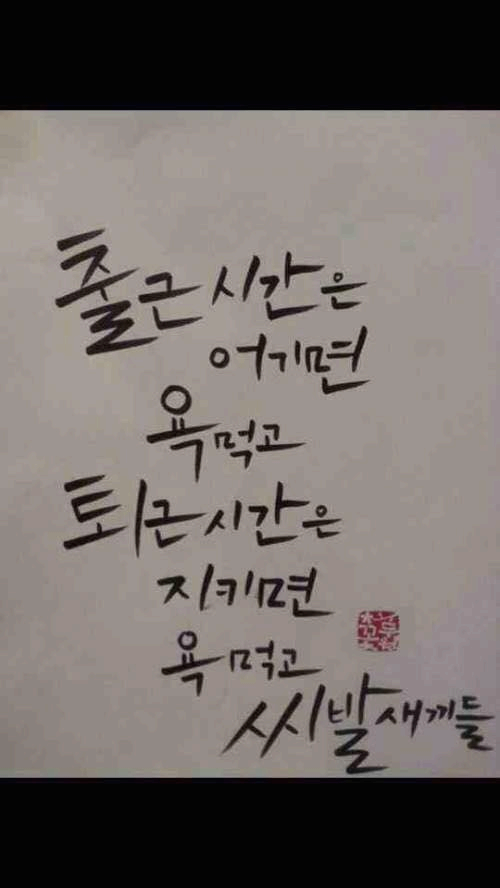 출근 시간은
어기면
욕먹고
퇴근 시간은
지키면
욕먹고
씨발새끼들